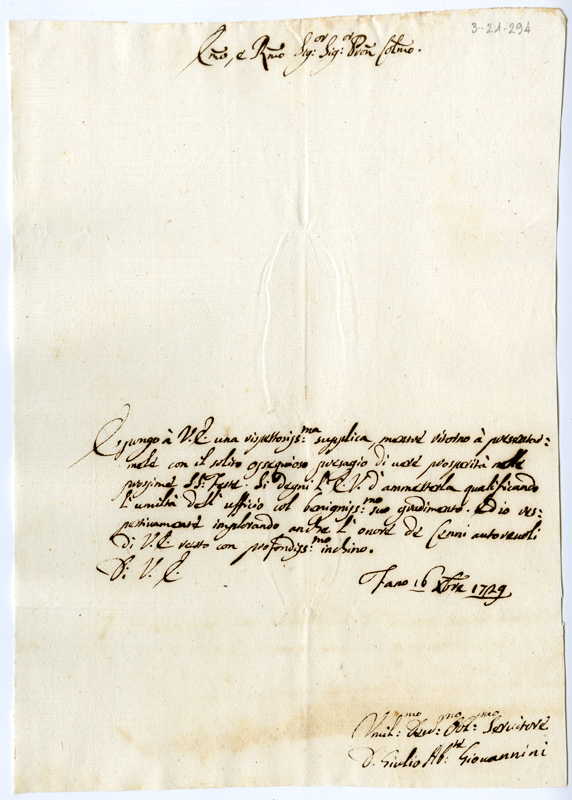 3-21-294
Emo, e Rmo Sig:or Sig:r Pron Colmo.
Espongo à V. E. una rispettosiss:ma supplica, mentre ritorno à presentar-
mele con il solito ossequioso presagio di vere prosperità nelle
prossime SS:e Feste. Si degni l'E. V. d'ammetterla qualificando
l'umiltà dell'ufficio col benigniss:mo suo gradimento. Ed io ris-
pettivamente implorando anche l'onore de Cenni autorevoli
di V. E. resto con profondiss:mo inchino.
Di V. E.
Fano 16 Xbre 1729
Umil:mo Dev:mo Obl:mo Servitore
D. Giulio Ab:te Giovannini